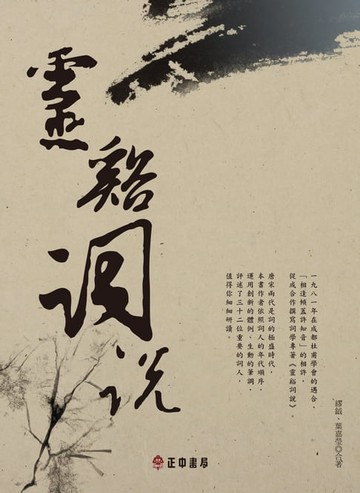 靈谿词说
一九八一年在成都杜甫學會的遇合，
「相逢傾蓋許知音」的相許，
促成合作撰寫詞學專著《靈谿詞說》
唐宋兩代是詞的極盛時代，
本書作者依照詞人的年代順序，
運用創新的體例，生動的筆調，
評述了三十二位重要的詞人，
值得你細細研讀。
繆鉞、葉嘉瑩◎合著
正中書局